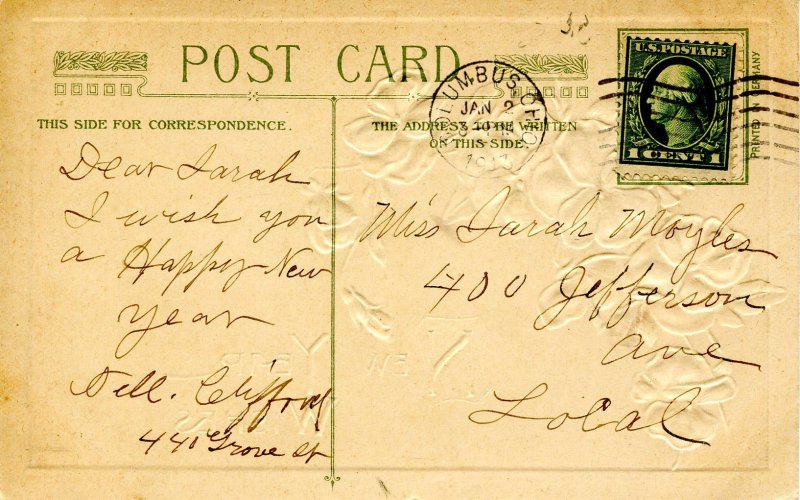 POST CARD
THIS SIDE FOR CORRESPONDENCE.
THE ADDRESS TO BE WRITTEN
ON THIS SIDE.
COLUMBUS, OHIO
JAN 2
1913
U.S. POSTAGE
1 CENT 1
PRINTED IN GERMANY
Dear Sarah
I wish you
a Happy New
Year
Nell. Clifford
440 Grove St
Miss Sarah Moyles
400 Jefferson
Ave
Local